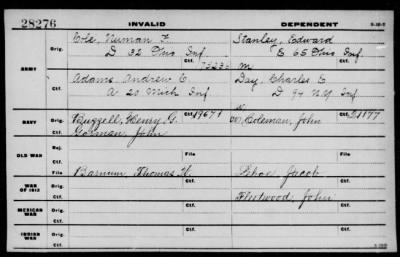 28276 INVALID DEPENDENT
Cole, Numan F. Stanley, Edward
Orig. D 32 Ind Inf. E 65 Ind Inf.
Ctf. Ctf.
ARMY
Adams, Andrew C. Day, Charles E
Orig. A 20 Mich Inf D 94 N.Y. Inf
Ctf. Ctf.
NAVY Orig. Buzzell, Henry G. 19671 Coleman, John 21177
Ctf. Gorman, John Ctf.
OLD WAR Rej.
Ctf. File File
WAR OF 1812 Orig. Barnum, Thomas H. Jacob
Ctf. Ctf. Fleetwood, John
MEXICAN WAR Orig.
Ctf.
INDIAN WAR Orig.
Ctf.